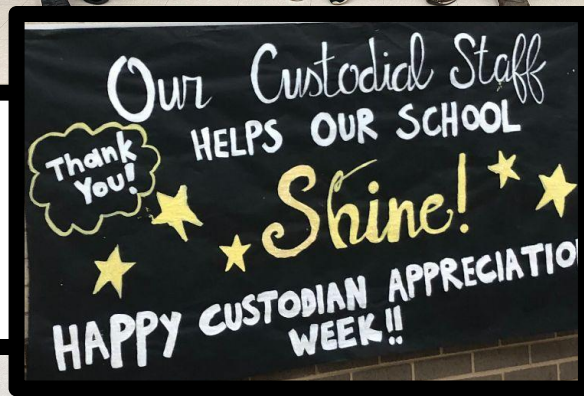 Our Custodial Staff
HELPS OUR SCHOOL
Thank
You!
Shine!
HAPPY CUSTODIAN APPRECIATIO
WEEK!!